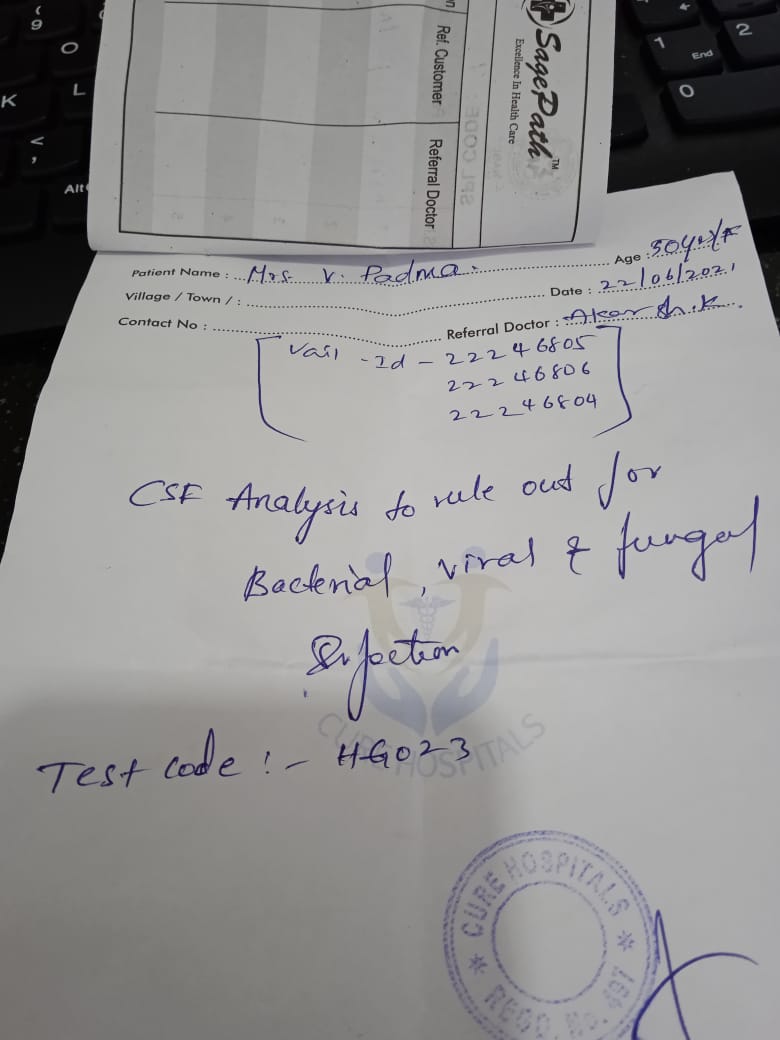 SagePath™
Excellence In Health Care
Ref. Customer
Referral Doctor
SPL CODE
Patient Name : Mrs V. Padma.
Age : 50yrs/F
Village / Town / :
Date : 22/06/2021
Contact No :
Referral Doctor : Akarsh.k.
Vail - Id - 22246805
22246806
22246804
CSF Analysis to rule out for
Bacterial, viral & fungal
Infection
Test code :- HG023
CURE HOSPITALS
CURE HOSPITALS
REGD. No. 497
9
O
K
L
<
,
Alt
1
End
2
0